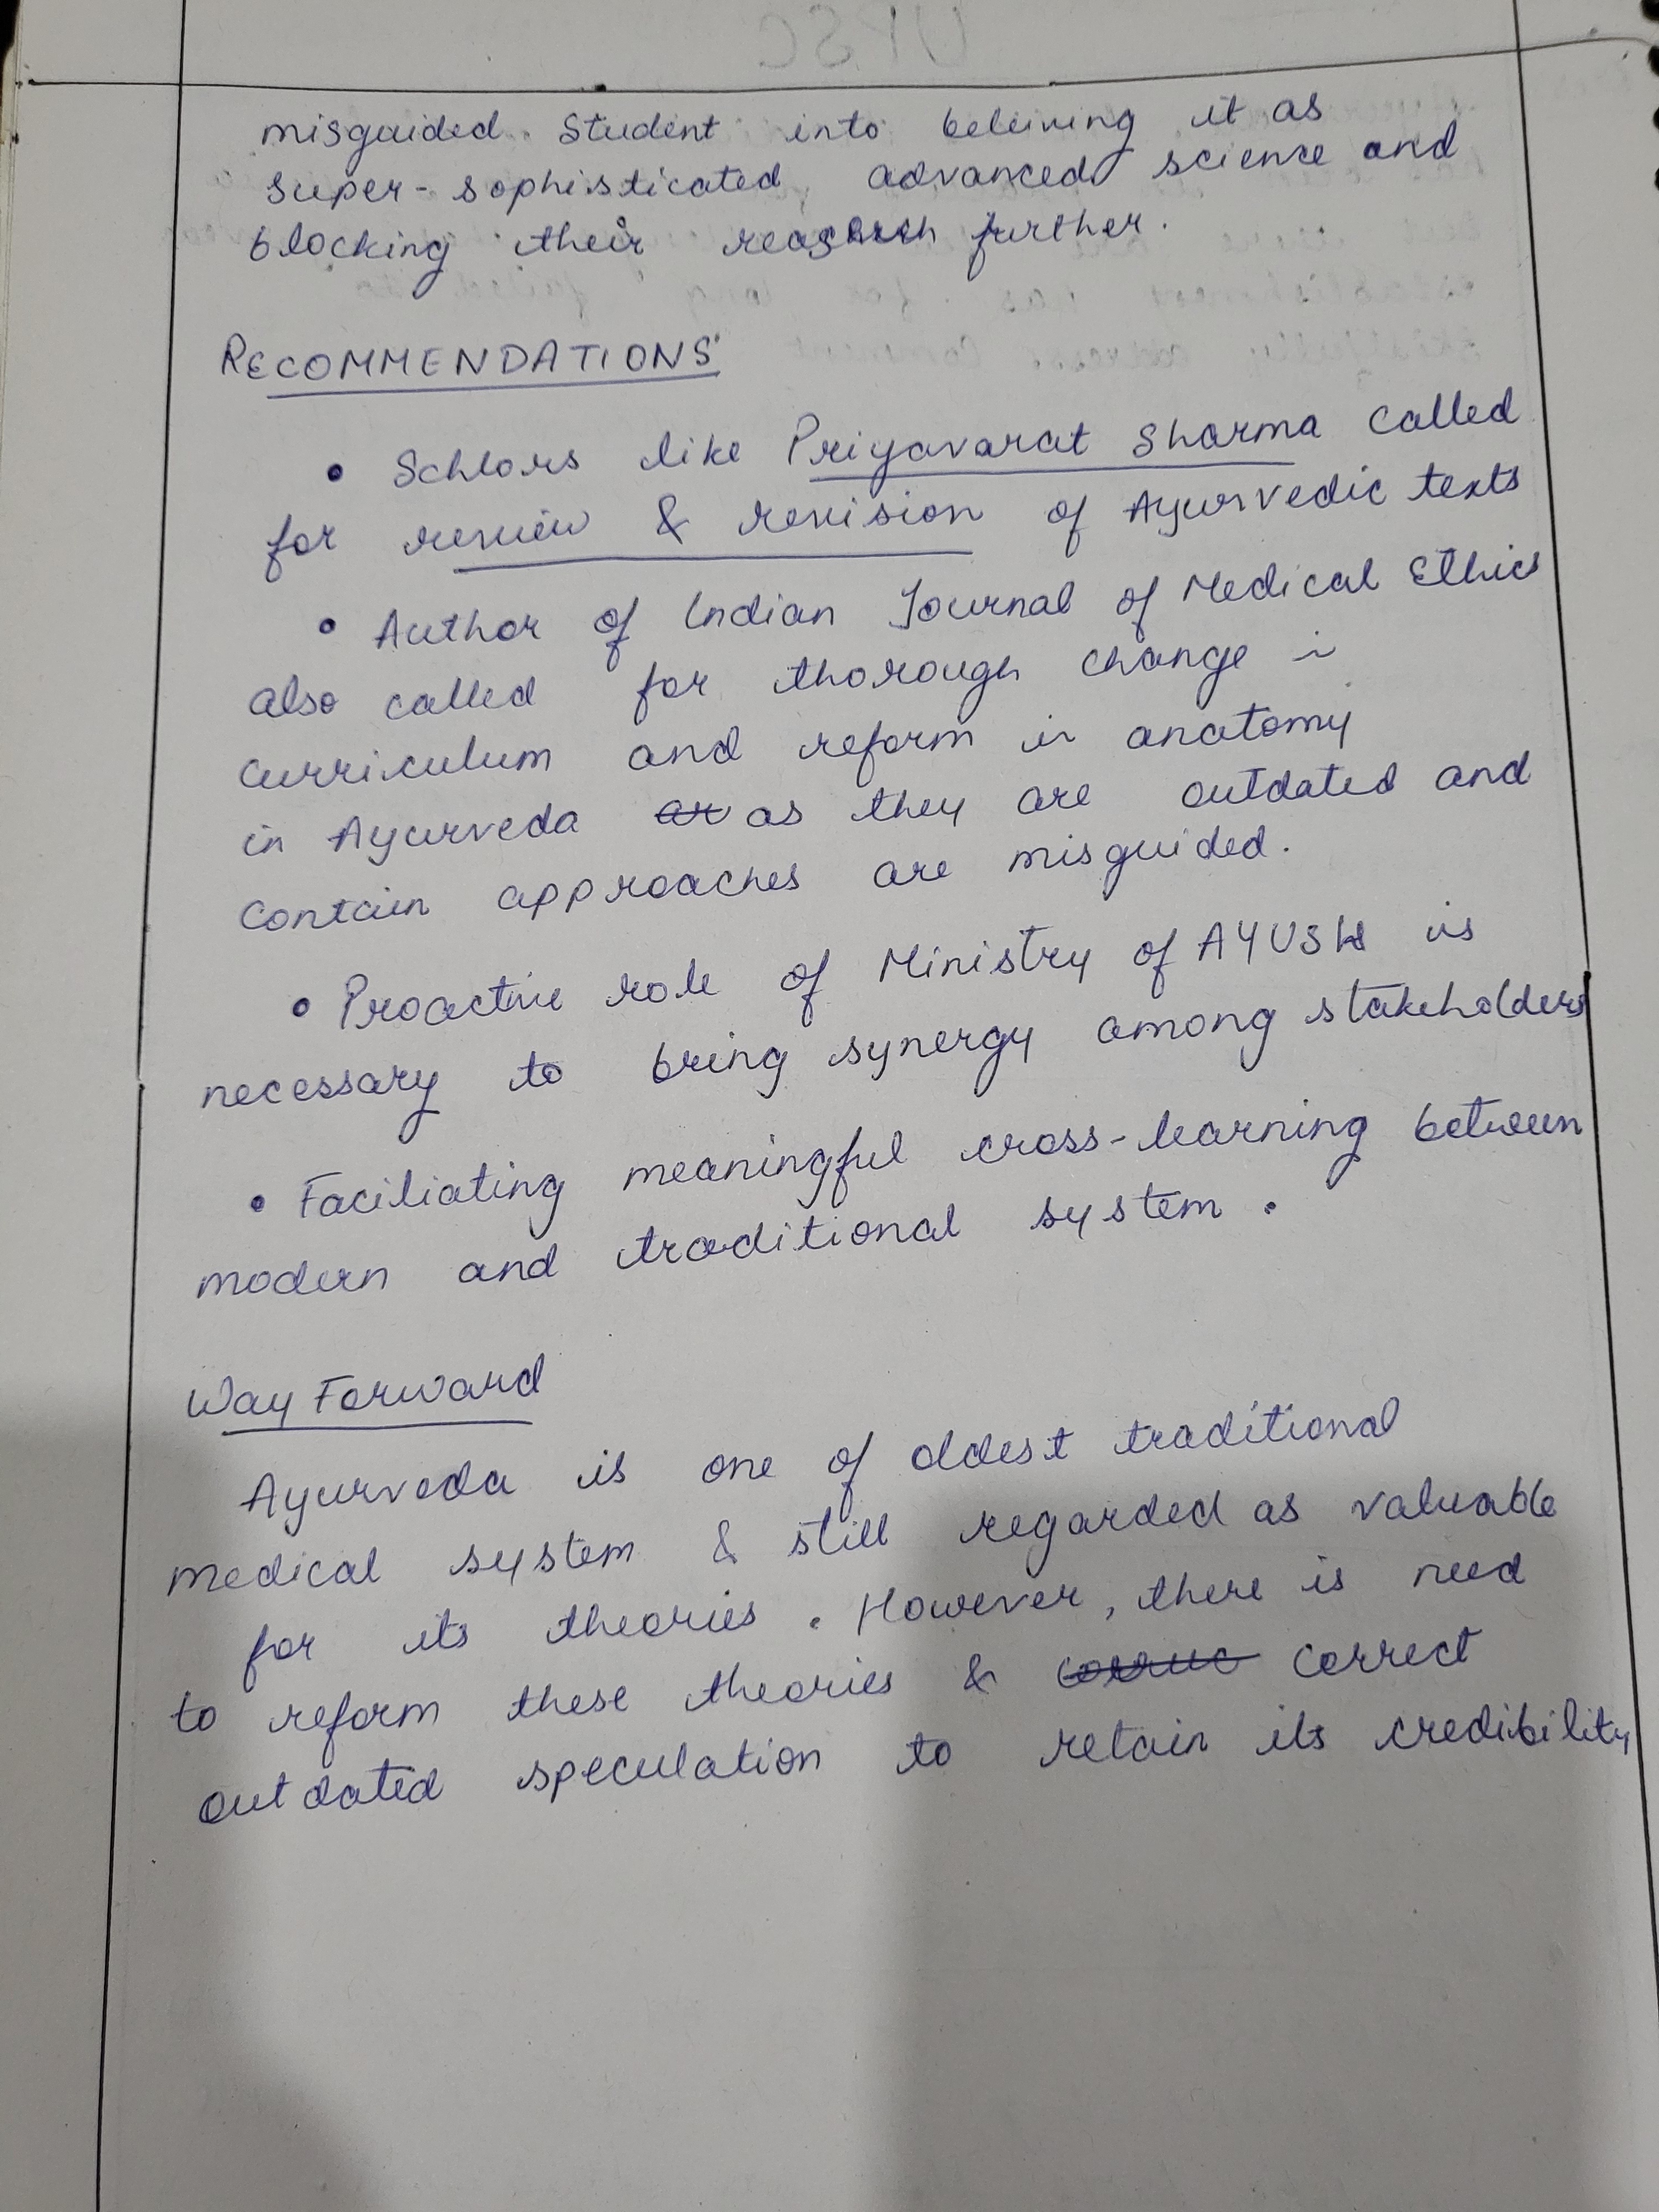 misguided student into beleiving it as
super-sophisticated advanced science and
blocking their further.
RECOMMENDATIONS
• Schlors like Priyavarat Sharma called
for review & revision of Ayurvedic texts
• Author of Indian Journal of Medical Ethics
also called for thorough change in
curriculum and reform in anatomy
in Ayurveda as they are outdated and
contain approaches are misguided.
• Proactive role of Ministry of AYUSH is
necessary to bring synergy among stakeholders
• Faciliating meaningful cross-learning between
modern and traditional system.
Way Forward
Ayurveda is one of oldest traditional
medical system & still regarded as valuable
for its theories. However, there is need
to reform these theories & correct
outdated speculation to retain its credibility